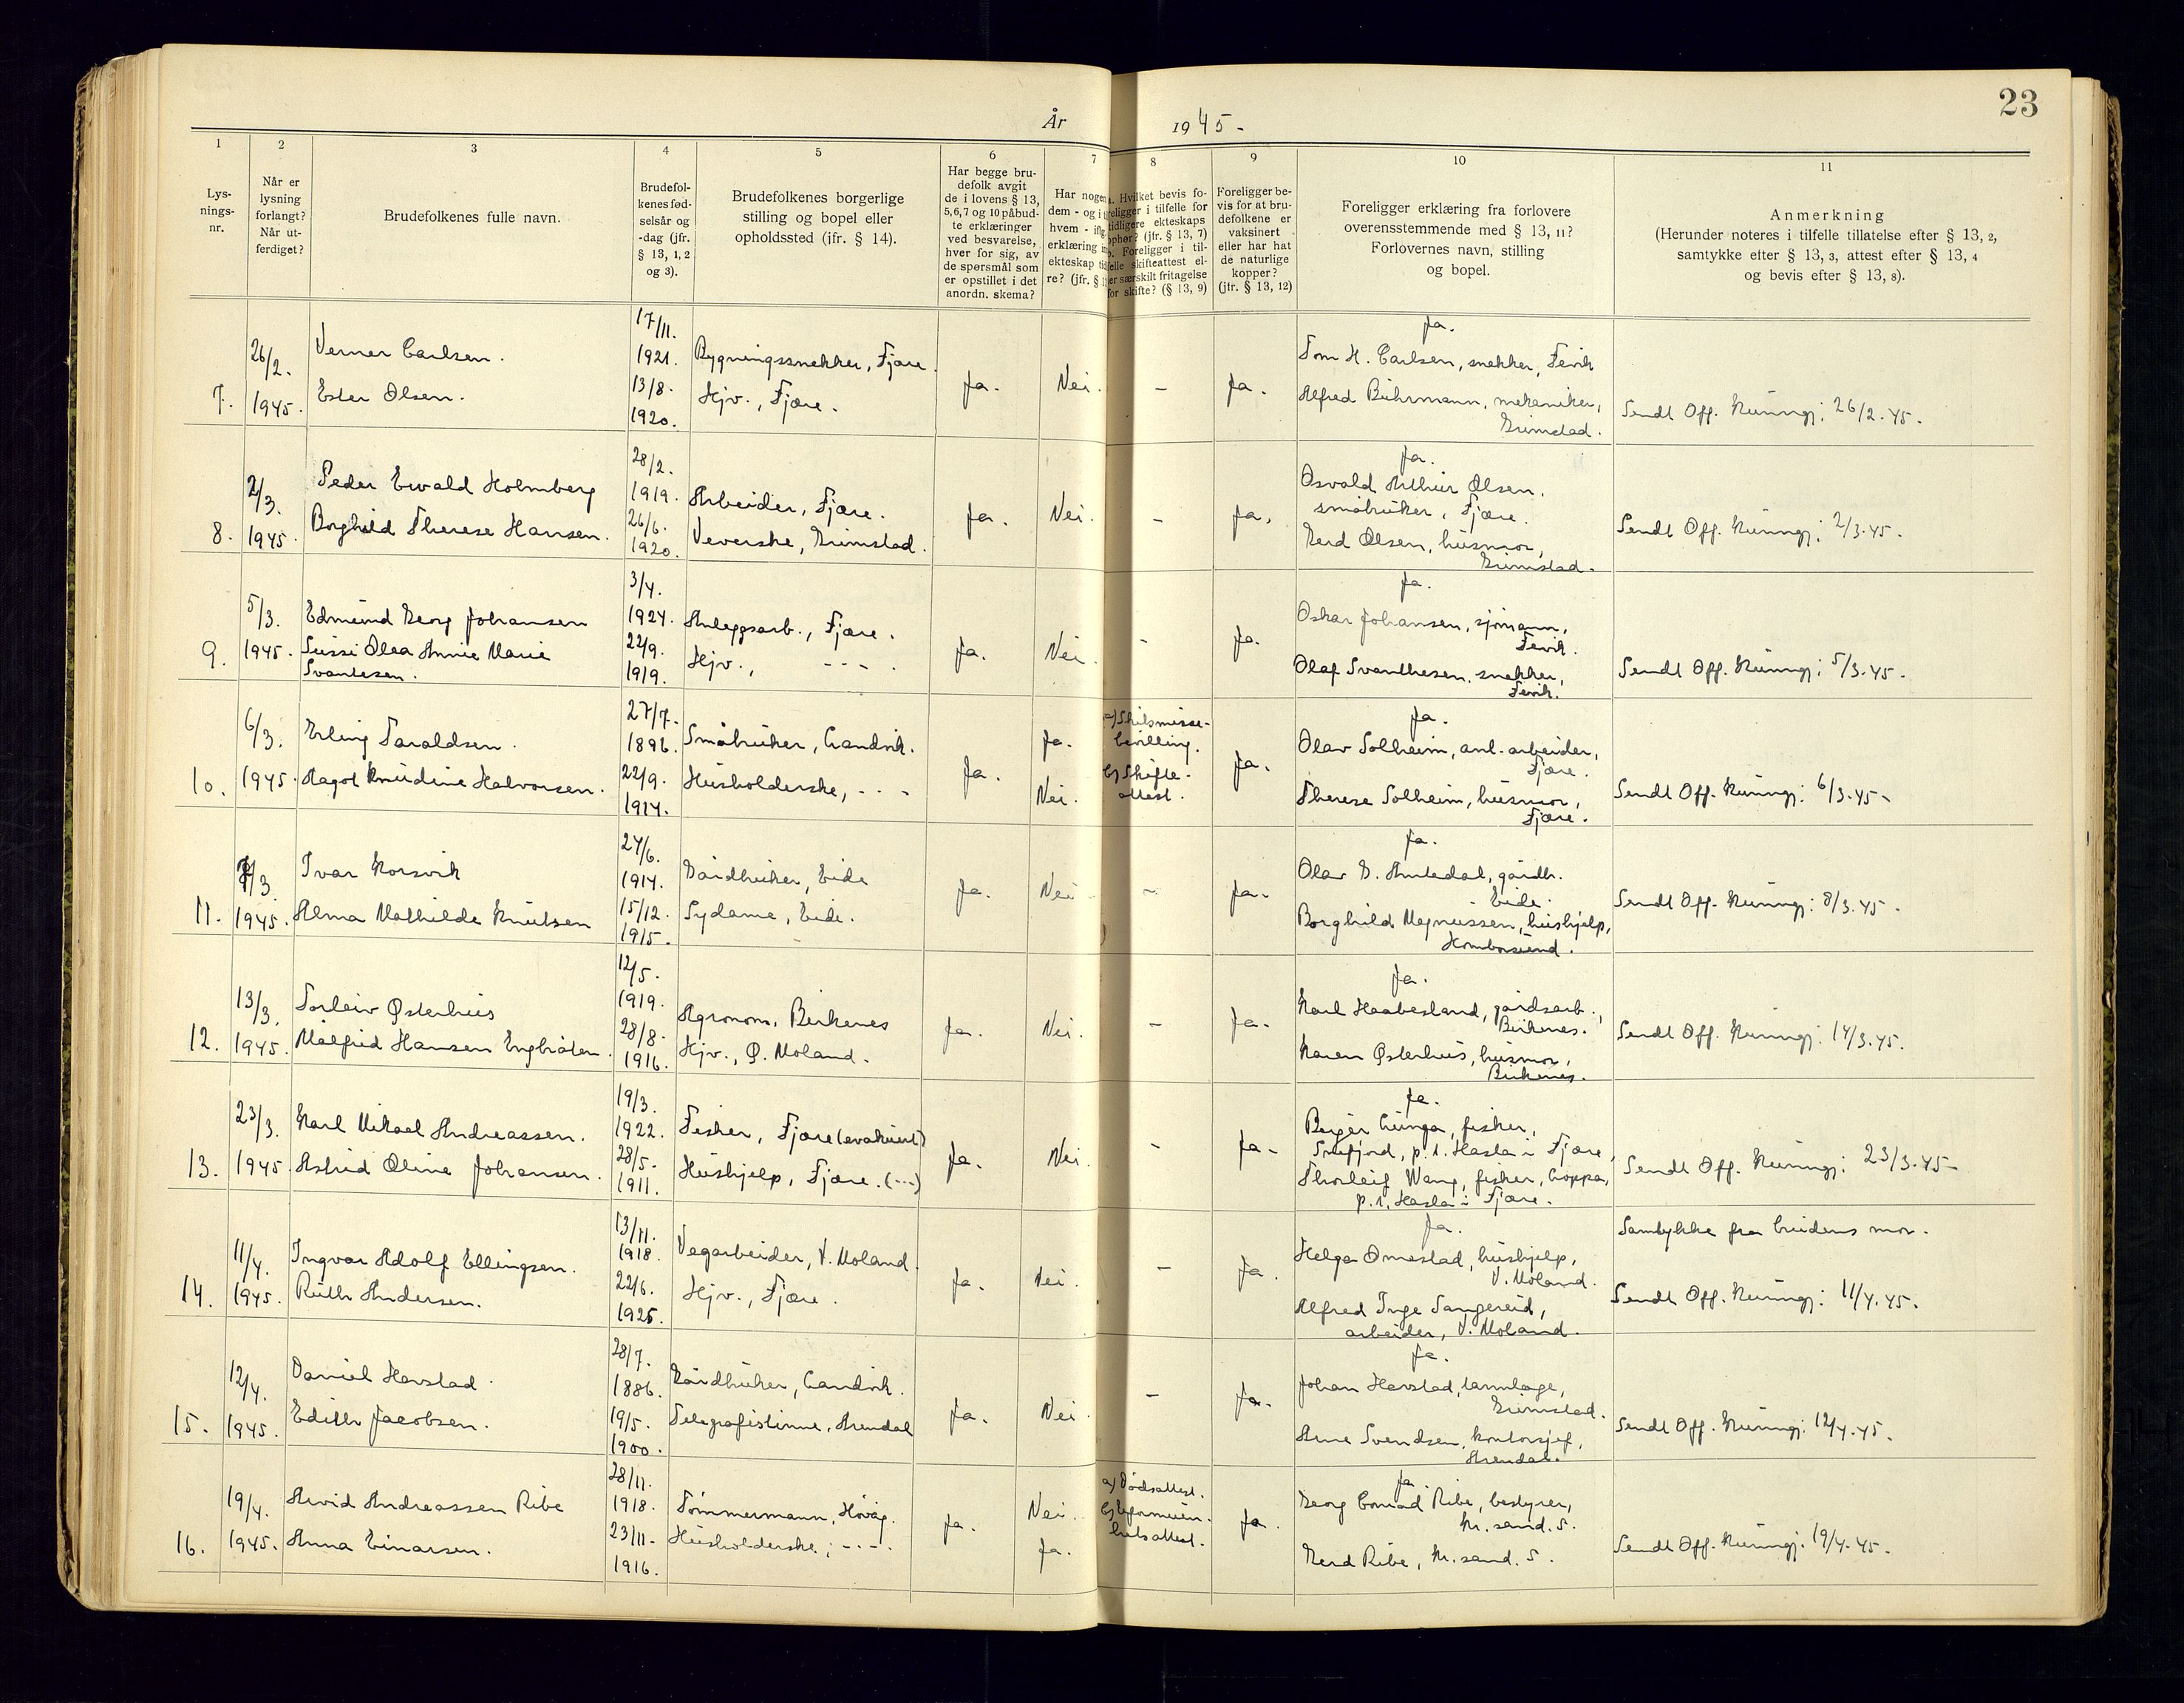 23
År 1945-
1 2 3 4 5 6 7 8 9 10 11
Lys-
nings-
nr.
Når er
lysning
forlangt?
Når ut-
ferdiget?
Brudefolkenes fulle navn.
Brudefol-
kenes fød-
selsår og
-dag (jfr.
§ 13, 1, 2
og 3).
Brudefolkenes borgerlige
stilling og bopel eller
opholdssted (jfr. § 14).
Har begge bru-
defolk avgit
de i lovens § 13,
5,6,7 og 10 påbud-
te erklæringer
ved besvarelse,
hver for sig, av
de spørsmål som
er opstillet i det
anordn. skema?
Har nogen
dem - og i
hvem - iflg.
erklæring
ekteskap
re? (jfr. §
a. Hvilket bevis fo-
religger i tilfelle for
tidligere ekteskaps
ophør? (jfr. § 13, 7)
b. Foreligger i til-
felle skifteattest el-
ler særskilt fritagelse
for skifte? (§ 13, 9)
Foreligger be-
vis for at bru-
defolkene er
vaksinert
eller har hat
de naturlige
kopper?
(jfr. § 13, 12)
Foreligger erklæring fra forlovere
overensstemmende med § 13, 11?
Forlovernes navn, stilling
og bopel.
Anmerkning
(Herunder noteres i tilfelle tillatelse efter § 13, 2,
samtykke efter § 13, 3, attest efter § 13, 4
og bevis efter § 13, 8).
7.
26/2.
1945.
Verner Carlsen.
Ester Olsen.
17/11.
1921.
13/8.
1920.
Bygningssnekker, Fjære.
Hjv., Fjære.
Ja.
Nei.
-
Ja.
Ja.
Tom H. Carlsen, snekker, Fevik
Alfred Bührmann, mekaniker,
Grimstad.
Sendt Off. Kunngj: 26/2.45.
8.
2/3.
1945.
Peder Ewald Holmberg
Borghild Therese Hansen.
28/2.
1919.
26/6.
1920.
Arbeider, Fjære.
Veverske, Grimstad.
Ja.
Nei.
-
Ja.
Ja.
Osvald Arthur Olsen,
småbruker, Fjære.
Gerd Olsen, husmor,
Grimstad.
Sendt Off. Kunngj: 2/3.45.
9.
5/3.
1945.
Edmund Georg Johansen
Sussi Olea Annie Marie
Svantesen.
3/4.
1924.
22/9.
1919.
Anleggsarb., Fjære.
Hjv., - - - .
Ja.
Nei.
-
Ja.
Ja.
Oskar Johansen, sjømann,
Fevik.
Olaf Svanthesen, snekker,
Fevik.
Sendt Off. Kunngj: 5/3.45.
10.
6/3.
1945.
Erling Taraldsen.
Aagot Knudine Halvorsen.
27/7.
1896.
22/9.
1914.
Småbruker, Landvik.
Husholderske, - - -
Ja.
Ja.
Nei.
a) Skilsmisse-
bevilling.
b) Skifte-
attest.
Ja.
Ja.
Olav Solheim, anl.arbeider,
Fjære.
Therese Solheim, husmor,
Fjære.
Sendt Off. Kunngj: 6/3.45-
11.
8/3.
1945.
Ivar Korsvik
Alma Mathilde Knutsen
24/6.
1914.
15/12.
1915.
Gårdbruker, Eide
Sydame, Eide.
Ja.
Nei
-
Ja.
Ja.
Olav G. Amtedal, gårdb.
Eide.
Borghild Magnussen, hushjelp,
Homborsund.
Sendt Off. Kunngj: 8/3.45.
12.
13/3.
1945.
Torleiv Østerhus
Målfrid Hansen Engbråten.
12/5.
1919.
28/8.
1916.
Agronom, Birkenes
Hjv., Ø. Moland.
Ja.
Nei.
-
Ja.
Ja.
Karl Haabesland, gårdsarb.,
Birkenes.
Karen Østerhus, husmor,
Birkenes.
Sendt Off. Kunngj: 14/3.45.
13.
23/3.
1945.
Karl Mikael Andreassen.
Astrid Oline Johansen.
19/3.
1922.
28/5.
1911.
Fisker, Fjære (evakuert)
Hushjelp, Fjære. (---)
Ja.
Nei.
-
Ja-
Ja.
Birger Lunga, fisker,
p.t. Hasla i Fjære,
Thorleif Wang, fisker, Loppa,
p.t. Hasla i Fjære.
Sendt Off. Kunngj: 23/3.45-
14.
11/4.
1945.
Ingvar Adolf Ellingsen.
Ruth Andersen.
13/11.
1918.
22/6.
1925.
Vegarbeider, V. Moland.
Hjv., Fjære.
Ja.
Nei.
-
Ja.
Ja.
Helga Omestad, hushjelp,
V. Moland.
Alfred Inge Tangereid,
arbeider, V. Moland.
Samtykke fra brudens mor.
Sendt Off. Kunngj: 11/4.45.
15.
12/4.
1945.
Daniel Harstad.
Edith Jacobsen.
28/7.
1886.
19/5.
1900.
Gårdbruker, Landvik.
Telegrafistinne, Arendal
Ja.
Nei.
-
Ja.
Ja.
Johan Harstad, tannlæge,
Grimstad.
Arne Svendsen, kontorsjef,
Arendal.
Sendt Off. Kunngj: 12/4.45.
16.
19/4.
1945.
Arvid Andreassen Ribe
Anna Einarsen.
28/11.
1918.
23/11.
1916.
Tømmermann, Høvåg.
Husholderske, - - - .
Ja.
Nei.
Ja.
a) Dødsattest.
b) Uformuen-
hetsattest.
Ja.
Ja
Georg Conrad Ribe, bestyrer,
Kr.sand. S.
Gerd Ribe, Kr.sand. S.
Sendt Off. Kunngj: 19/4.45.